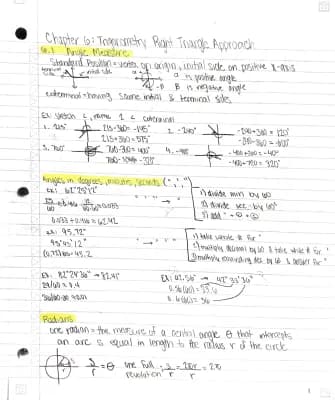 Chapter 6: Trigonometry Right Triangle Approach
6.1 Angle Measure
Standard Position = vertex on origin, initial side on positive x-axis
terminal side initial side α is positive angle
B is negative angle
coterminal = having same initial & terminal sides
Ex: Sketch <, name 2 < coterminal
1. 215° 215-360 = -145° 2. -240° -240+360 = 120°
215+360 = 575° -240-360 = -600°
3. 760° 760-360 = 400° -400+360 = -40°
-400+720 = 320°
Angles in degrees, minutes, seconds (° ' ")
1) divide min by 60
2) divide sec by 60²
3) add ° + +
ex: 95.72°
95° 43' 12"
1) take whole # for °
2) multiply decimal by 60 & take whole # for '
Ex: 82° 24' 36" → 82.41°
Ex: 42.56° → 42° 33' 36"
24/60 = 0.4
0.56(60) = 33.6
0.6(60) = 36
Radians
one radian = the measure of a central angle θ that intercepts
an arc s equal in length to the radius r of the circle
s/r = θ one full revolution s/r = 2πr/r = 2π